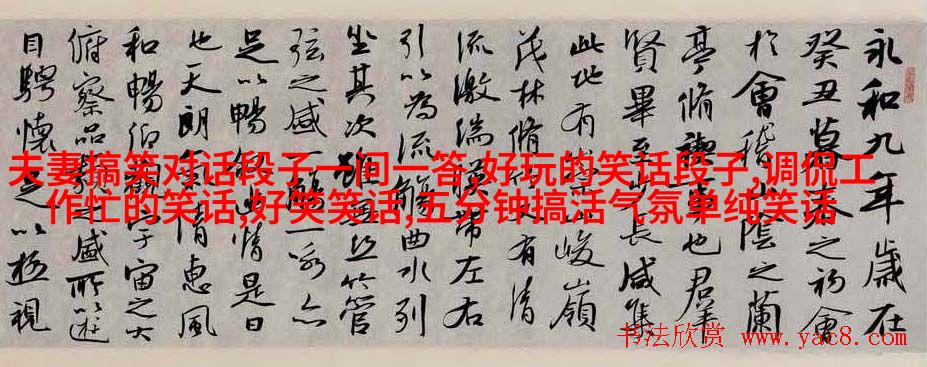 永和九年歲在
癸丑暮春之初會
於會稽山陰之蘭
亭脩禊事也群
賢畢至少長咸集
此地有崇山峻嶺
茂林脩竹又有清
流激湍暎帶左右
引以為流觴曲水列
坐其次雖無絲竹管
弦之盛一觴一詠亦
足以暢敘幽情是日
也天朗氣清惠風
和暢仰觀宇宙之大
俯察品類之盛所以遊
目騁懷足以極視
夫妻搞笑对话段子一问一答,好玩的笑话段子,调侃工
作忙的笑话,好笑笑话,五分钟搞活气氛单纯笑话
书法欣赏 www.yac8.com